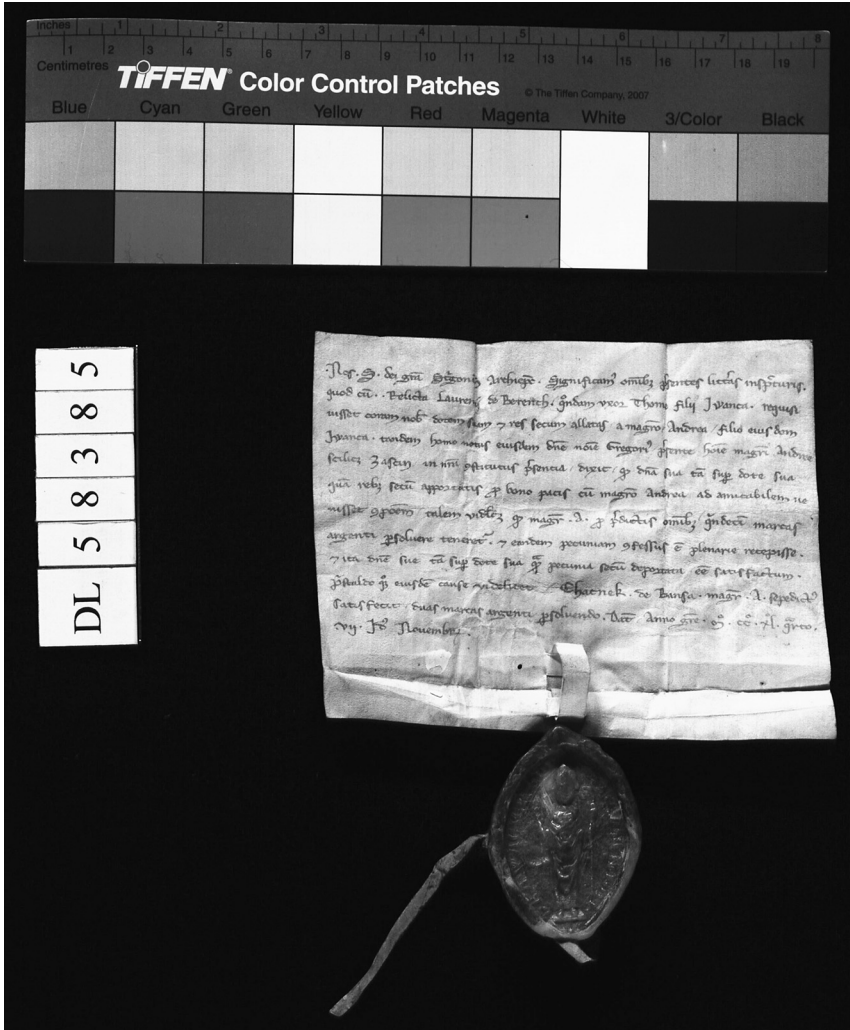 Inches 1 2 3 4 5 6 7 8
Centimetres 1 2 3 4 5 6 7 8 9 10 11 12 13 14 15 16 17 18 19
TIFFEN® Color Control Patches © The Tiffen Company, 2007
Blue Cyan Green Yellow Red Magenta White 3/Color Black
DL 58385
Nos . S . dei gr̄a Archiep̄c . Significam᷒ om̄ibꝫ p̄sentes litt̄as inspc̄turis .
quod cū . Relicta Laurenc̄ de Berench . q̄ndam vxor Thome filij Jwanca . requisi
uisset coram nob̄ dotem suam ⁊ res secum allatas a magr̄o Andrea filio eiusdem
Jwanca . tandem homo eiusdem dn̄e noīe Gregori᷒ p̄sente hoīe magr̄i Andree
scilicꝫ in nr̄i ꝯstitutus p̄sencia dixit . ꝙ dn̄a sua tā sup̄ dote sua
quā rebꝫ secū apportatis ꝓ bono pacis cū magr̄o Andrea ad amicabilem ue
nisset ꝯpoc̄em talem videlꝫ ꝙ magr̄ . A . ꝓ p̄dictis om̄ibꝫ marcas
argenti ꝑsoluere teneret᷒ . ⁊ eandem pecuniam ꝯfessus ē plenarie recepisse .
⁊ ita dn̄e sue tā sup̄ dote sua pecunia secū deportata eē satisfactum .
p̄staldo eiusdē cause videlicet Chacnek . de Bansa . magr̄ . A . sepedict᷒
satisfecit . duas marcas argenti ꝑsoluendo . Dat̄ Anno gr̄e . m̊ . cc̊ . xl̊ . q̄rto .
vij . Id᷒ Novembr̄ .